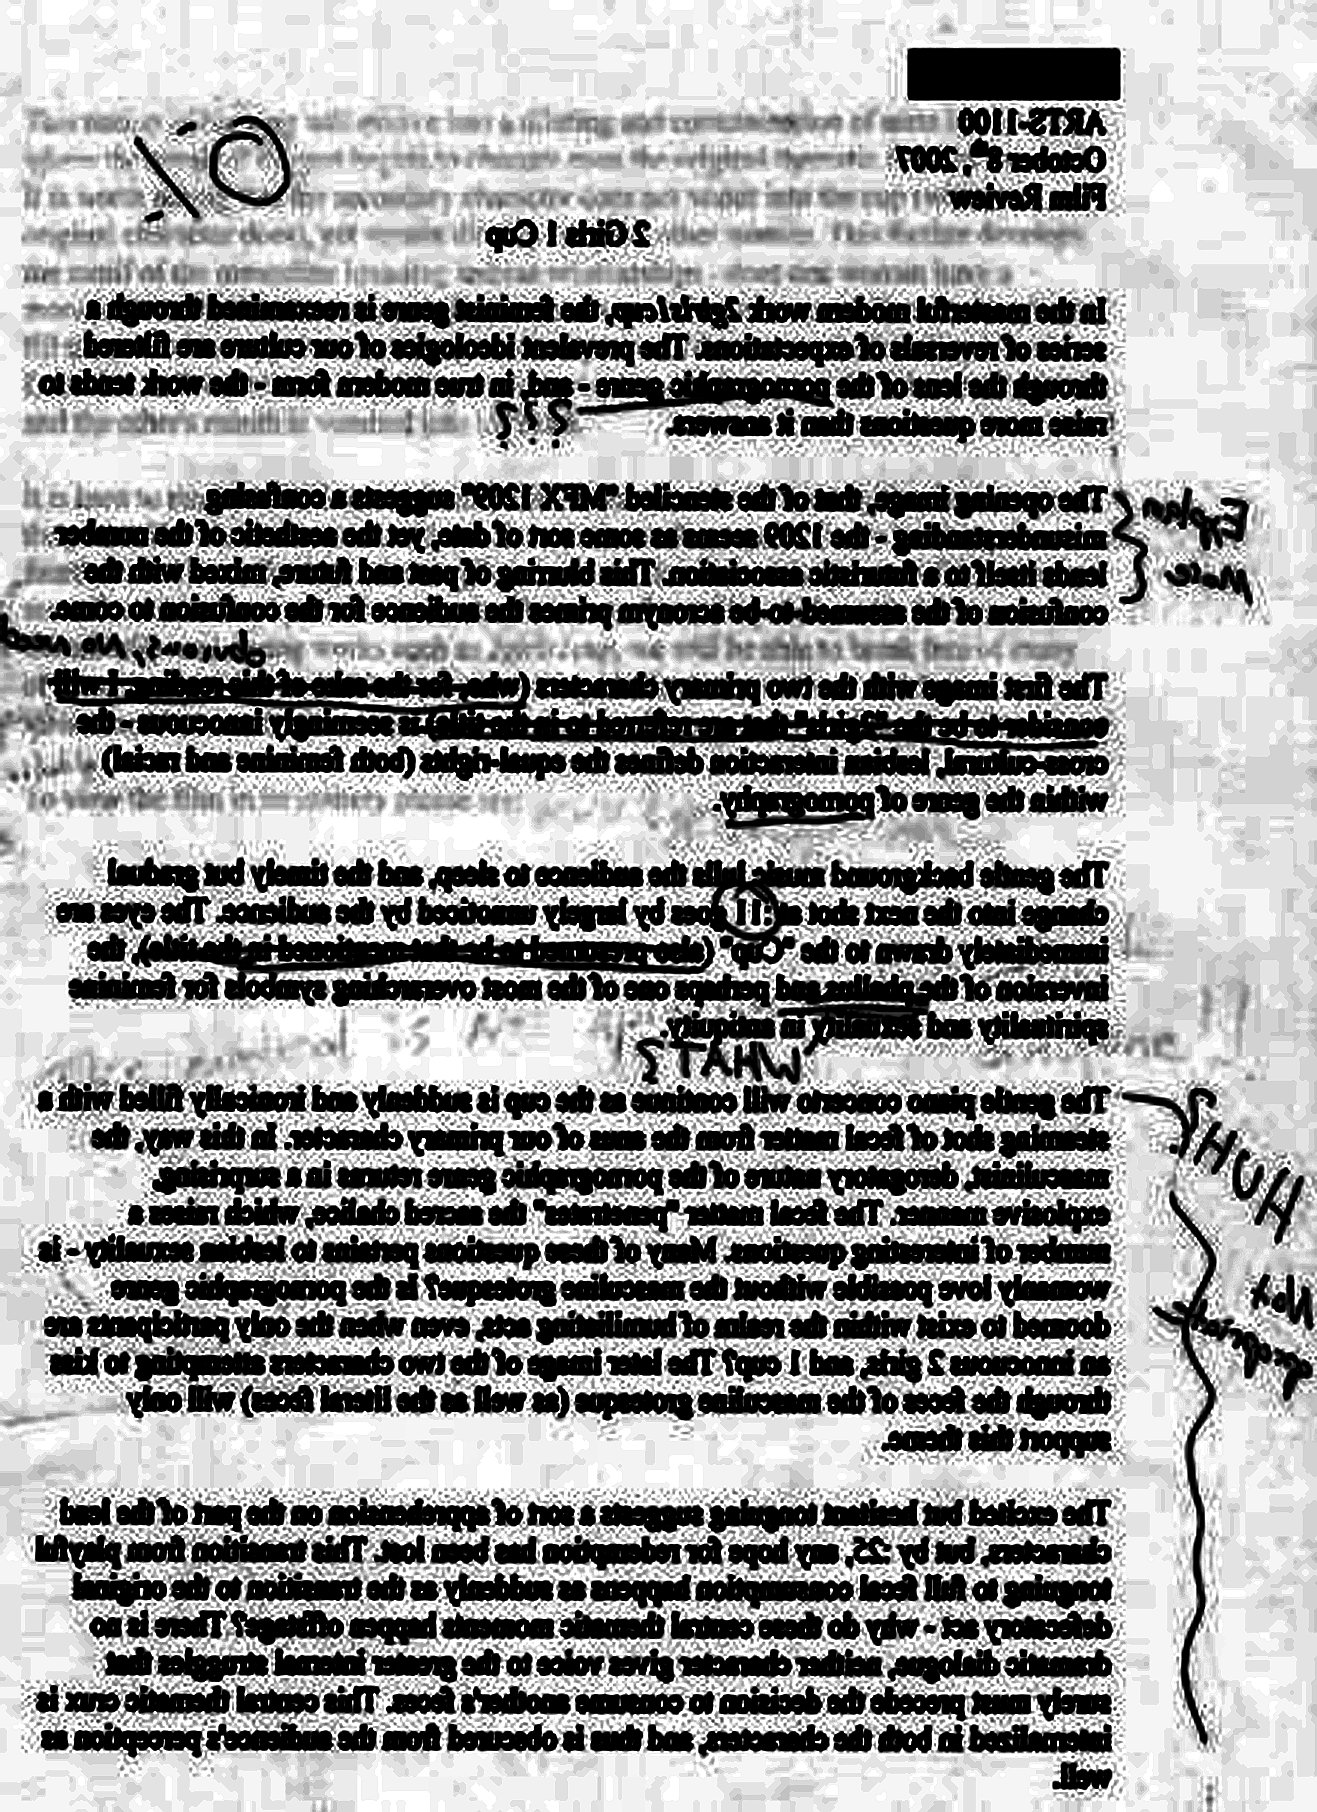 ARTS-1100
October 8th, 2007
Film Review
0%
2 Girls 1 Cup
In the masterful modern work 2girls1cup, the feminist genre is reexamined through a
series of reversals of expectations. The prevalent ideologies of our culture are filtered
through the lens of the pornographic genre - and, in true modern form - the work tends to
raise more questions than it answers.
???
The opening image, that of the stenciled "MFX 1209" suggests a confusing
misunderstanding - the 1209 seems as some sort of date, yet the aesthetic of the number
lends itself to a futuristic association. This blurring of past and future, mixed with the
confusion of the assumed-to-be acronym primes the audience for the confusion to come.
Explain
More
obvious, No need
The first image with the two primary characters (who, for the sake of this reading, I will
consider to be the "2 girls" that are referred to in the title) is seemingly innocuous - the
cross-cultural, lesbian interaction defines the equal-rights (both feminine and racial)
within the genre of pornography.
The gentle background music lulls the audience to sleep, and the timely but gradual
change into the next shot at :11 goes by largely unnoticed by the audience. The eyes are
immediately drawn to the "Cup" (also presumed to be that mentioned in the title), the
inversion of the phallus and perhaps one of the most overarching symbols for feminine
spirituality and sexuality in antiquity.
WHAT?
The gentle piano concerto will continue as the cup is suddenly and ironically filled with a
steaming shot of fecal matter from the anus of our primary character. In this way, the
masculinist, derogatory nature of the pornographic genre returns in a surprising,
explosive manner. The fecal matter "penetrates" the sacred chalice, which raises a
number of interesting questions. Many of these questions pertains to lesbian sexuality - is
womanly love possible without the masculine grotesque? Is the pornographic genre
doomed to exist within the realm of humiliating acts, even when the only participants are
an innocuous 2 girls, and 1 cup? The later image of the two characters attempting to kiss
through the feces of the masculine grotesque (as well as the literal feces) will only
support this theme.
HUH?
Not
The excited but hesitant tonguing suggests a sort of apprehension on the part of the lead
characters, but by :25, any hope for redemption has been lost. This transition from playful
tonguing to full fecal consumption happens as suddenly as the transition to the original
defecatory act - why do these central thematic moments happen offstage? There is no
dramatic dialogue, neither character gives voice to the greater internal struggles that
surely must precede the decision to consume another's feces. This central thematic crux is
internalized in both the characters, and thus is obscured from the audience's perception as
well.